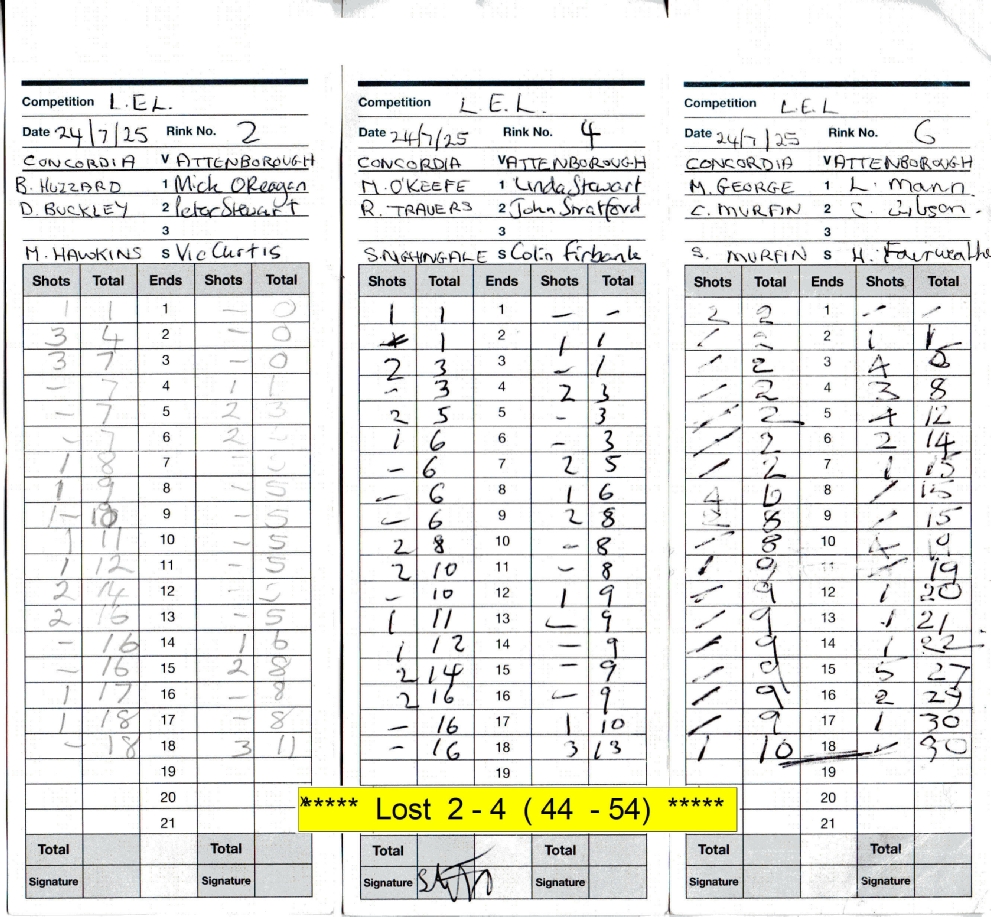 Competition L.E.L.
Date 24/7/25 Rink No. 2
CONCORDIA V ATTENBOROUGH
B. HUZZARD 1 Mick O'Reagan
D. BUCKLEY 2 Peter Stewart
3
M. HAWKINS S Vic Curtis
Shots Total Ends Shots Total
1 1 1 - 0
3 4 2 - 0
3 7 3 - 0
- 7 4 1 1
- 7 5 2 3
- 7 6 2
1 8 7 -
1 9 8 - 5
1- 10 9 - 5
1 11 10 - 5
1 12 11 - 5
2 14 12 - 5
2 16 13 - 5
- 16 14 1 6
- 16 15 2 8
1 17 16 - 8
1 18 17 - 8
- 18 18 3 11
19
20
21
Total Total
Signature Signature
Competition L.E.L.
Date 24/7/25 Rink No. 4
CONCORDIA V ATTENBOROUGH
M. O'KEEFE 1 Linda Stewart
R. TRAVERS 2 John Stratford
3
S. NIGHINGALE S Colin Firbank
Shots Total Ends Shots Total
1 1 1 - -
1 2 1 1
2 3 3 - 1
- 3 4 2 3
2 5 5 - 3
1 6 6 - 3
- 6 7 2 5
- 6 8 1 6
- 6 9 2 8
2 8 10 - 8
2 10 11 - 8
- 10 12 1 9
1 11 13 - 9
1 12 14 - 9
2 14 15 - 9
2 16 16 - 9
- 16 17 1 10
- 16 18 3 13
19
***** Lost 2 - 4 ( 44 - 54) *****
Total Total
Signature Signature
Competition L.E.L
Date 24/7/25 Rink No. 6
CONCORDIA V ATTENBOROUGH
M. GEORGE 1 L. Mann.
C. MURFIN 2 C. Gibson.
3
S. MURFIN S H. Fairweathe
Shots Total Ends Shots Total
2 2 1 / /
/ 2 2 1 1
/ 2 3 4 5
/ 2 4 3 8
/ 2 5 4 12
/ 2 6 2 14
/ 2 7 1 15
4 6 8 / 15
2 8 9 / 15
/ 8 10 4 19
1 9 11 / 19
/ 9 12 1 20
/ 9 13 1 21
/ 9 14 1 22
/ 9 15 5 27
/ 9 16 2 29
/ 9 17 1 30
1 10 18 / 30
19
20
21
Total Total
Signature Signature